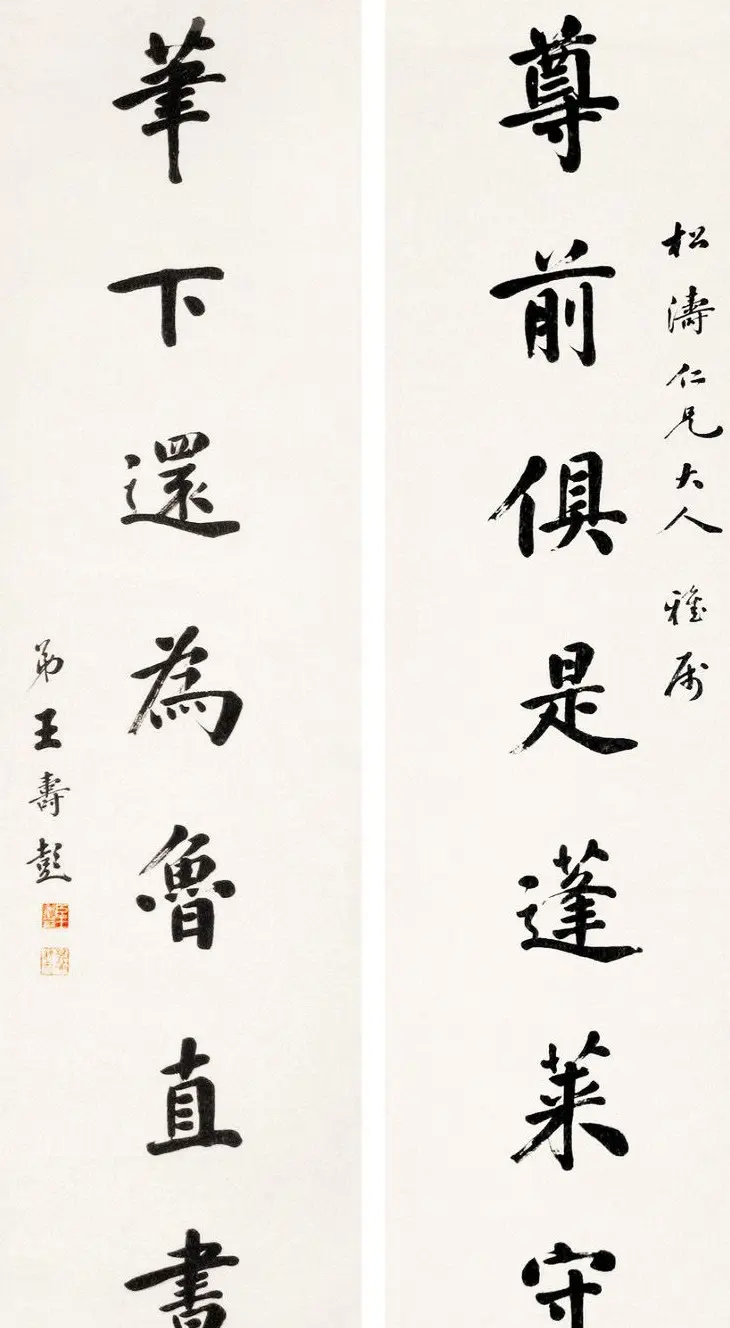 松濤仁兄大人 雅屬
尊前俱是蓬萊守
筆下還為魯直書
弟王壽彭